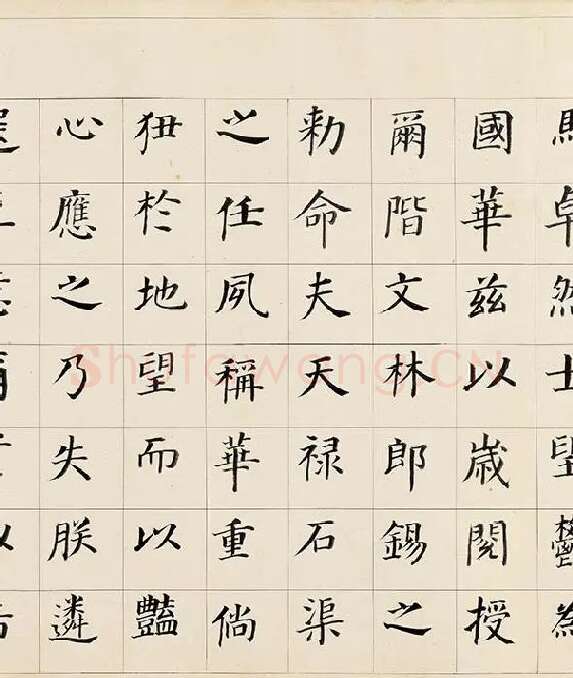 卓然士望鬱為
國華茲以歲閱授
爾階文林郎錫之
勅命夫天禄石渠
之任夙稱華重倘
狃於地望而以豔
心應之乃失朕遴
Shufawang.CN